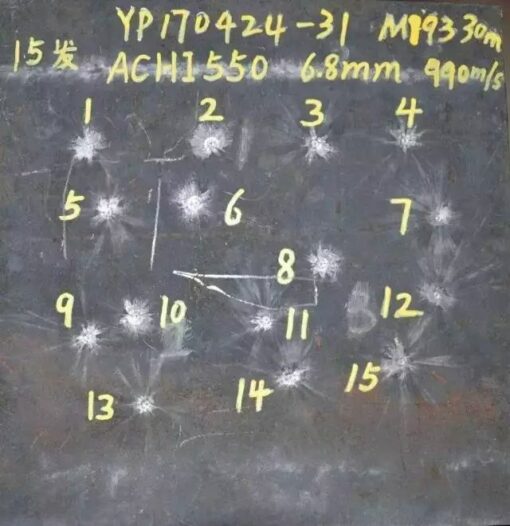 YP170424-31 M193 30m
15发 ACHI550 6.8mm 990m/s
1 2 3 4
5 6 7
8
9 10 11 12
13 14 15